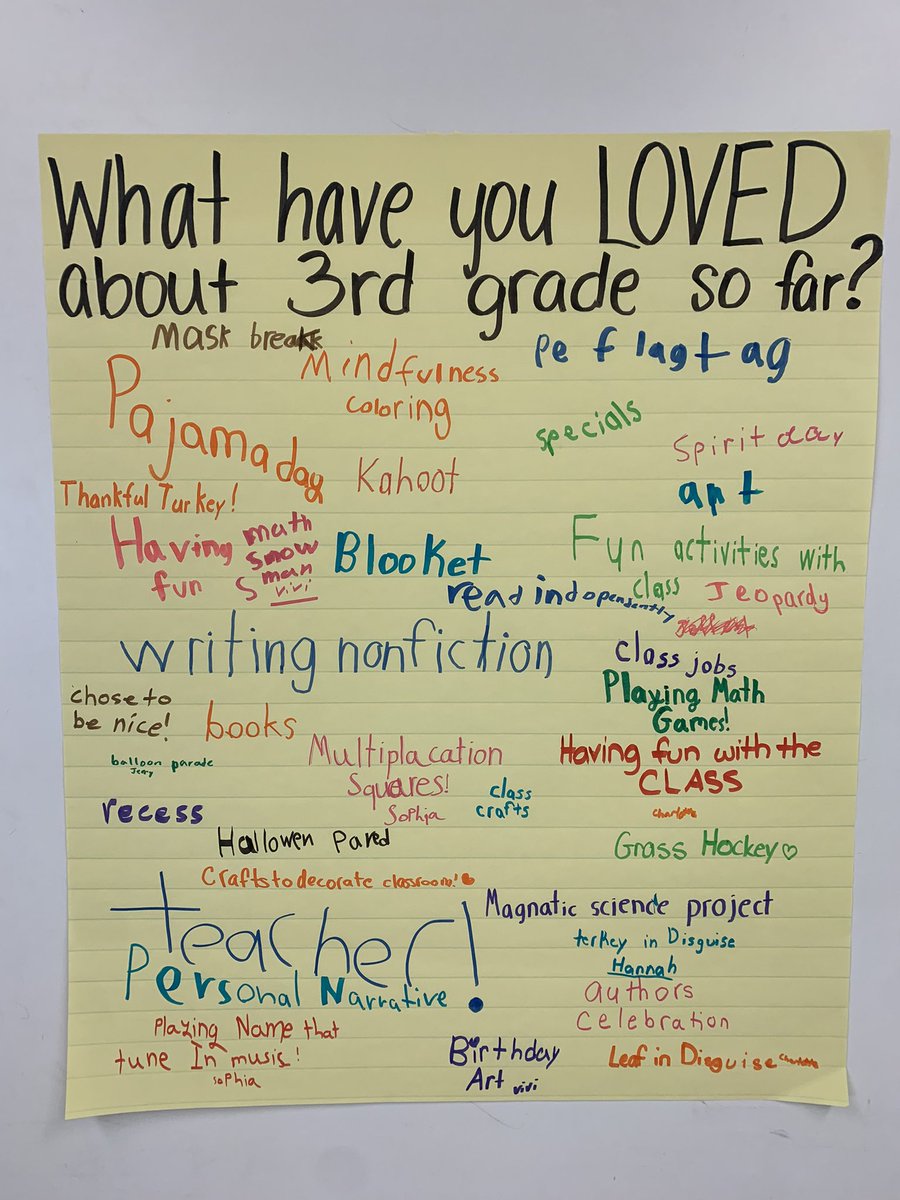 What have you LOVED
about 3rd grade so far?
Mask breaks
Mindfulness
coloring
Pe flagt ag
Pajama day
specials
Spirit day
Kahoot
Thankful Turkey!
art
Having
fun
math
snow
man
s
vivi
Blooket
Fun activities with
class
read independently
Jeopardy
writing nonfiction
class jobs
Playing Math
Games!
chose to
be nice!
books
balloon parade
Jerry
Multiplacation
Squares!
Sophia
class
crafts
Having fun with the
CLASS
Charlotte
recess
Hallowen Pared
Grass Hockey
Crafts to decorate classroom!
teacher!
Magnatic science project
terkey in Disguise
Hannah
Personal Narrative
authors
celebration
Playing Name that
tune In music!
Sophia
Birthday
Art vivi
Leaf in Disguise Charlotte